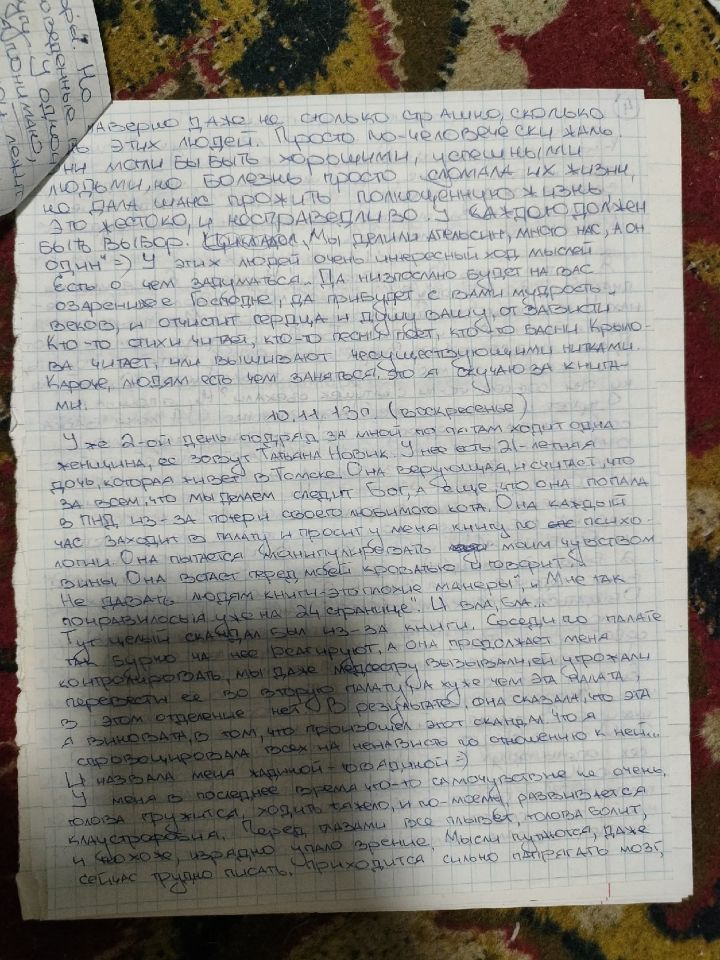 оры. Но
оваленные
у одной
понимаю,
лежит
13
наверно даже не столько страшно, сколько
этих людей. Просто по-человечески жаль.
они могли бы быть хорошими, успешными
людьми, но болезнь просто сломала их жизни,
не дала шанс прожить полноценную жизнь.
Это жестоко, и несправедливо. У каждого должен
быть выбор. Мы делили апельсин, много нас, а он
один" =) У этих людей очень инересный ход мыслей
Есть о чем задуматься. Да низпослано будет на вас
озарение Господне, да прибудет с вами мудрость
веков, и отчистит сердца и душу вашу, от зависти
Кто-то стихи читает, кто-то песни поет, кто-то басни Крыло-
ва читает, или вышивают несуществующими нитками.
Кароче, людям есть чем заняться. Это я скучаю за книга-
ми.
10.11.13г. (воскресенье)
Уже 2-ой день подряд, за мной по пятам ходит одна
женщина, ее зовут Татьяна Новик. У нее есть 21-летняя
дочь, которая живет в Томске. Она верующая, и считает, что
за всем, что мы делаем следит Бог, а еще что она попала
в ПНД из-за потери своего любимого кота. Она каждый
час заходит в палату и просит у меня книгу по психо-
логии. Она пытается манипулировать моим чувством
вины. Она встает перед моей кроватью и говорит:
Не давать людям книги - это плохие манеры", "Мне так
понравилось я уже на 24 странице". И бла, бла...
Тут целый скандал был из-за книги. Соседи по палате
бурно на нее реагируют, а она продолжает меня
контролировать, мы даже медсестру вызывали, ей угрожали
перевести ее во вторую палату, а хуже чем эта палата,
в этом отделение нет. В результате, она сказала, что эта
я виновата, в том, что произошел этот скандал, что я
спровоцировала всех на ненависть по отношению к ней...
И назвала меня жадиной-говядиной =)
У меня в последнее время что-то самочувствие не очень.
голова кружится, ходить тяжело, и по-моему, развивается
клаустрофобия. Перед глазами все плывет, голова болит,
и похоже, изрядно упало зрение. Мысли путаются, даже
сейчас трудно писать. Приходится сильно напрягать мозг,